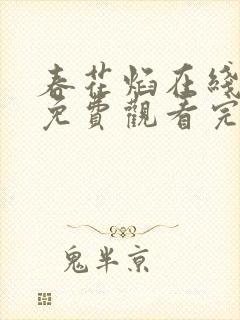 春花焰在綫
免費觀看完
鬼半京